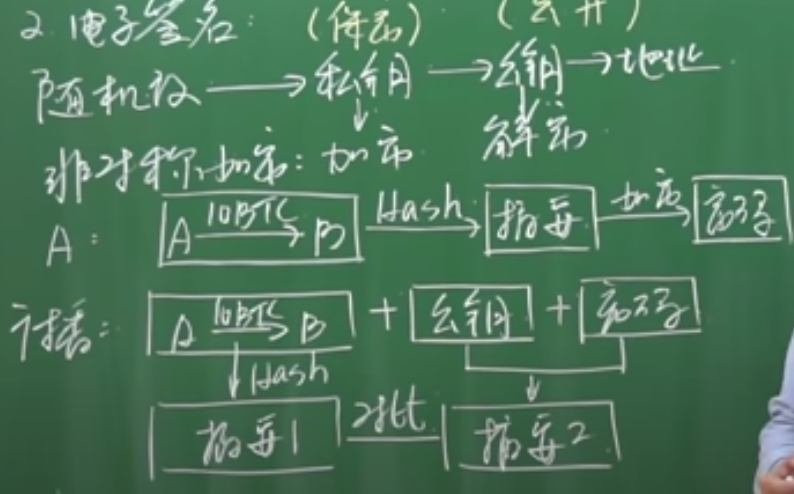 2. 电子签名: (保密) (公开)
随机数 → 私钥 → 公钥 → 地址
非对称加密: 加密 解密
A: A 10BTC→ B Hash→ 摘要 加密→ 密码
广播: A 10BTC→ B + 公钥 + 密码
Hash
摘要1 对比 摘要2